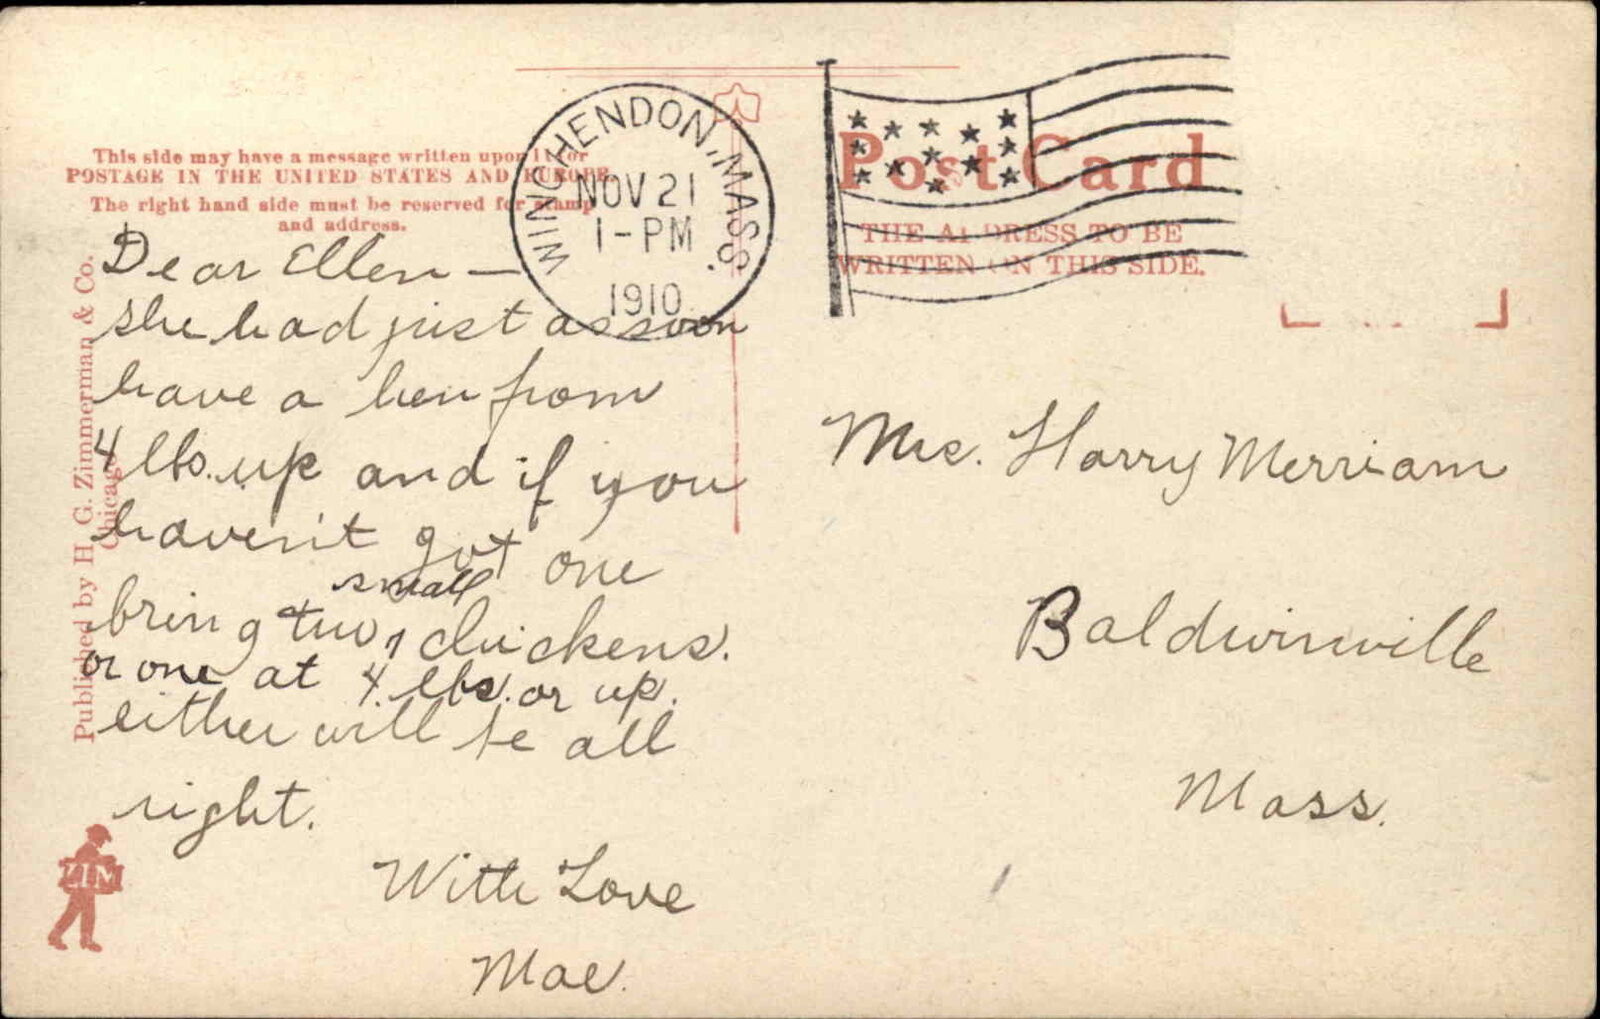 This side may have a message written upon it for
POSTAGE IN THE UNITED STATES AND EUROPE.
The right hand side must be reserved for stamp
and address.
WINCHENDON, MASS.
NOV 21
1-PM
1910
Post Card
THE ADDRESS TO BE
WRITTEN ON THIS SIDE.
Published by H. G. Zimmerman & Co.
Chicago
Dear Ellen —
she had just as soon
have a hen from
4 lbs. up and if you
haven't got one
bring two small chickens.
or one at 4 lbs. or up.
either will be all
right.
With Love
Mae.
ZIM
Mrs. Harry Merriam
Baldwinville
Mass.